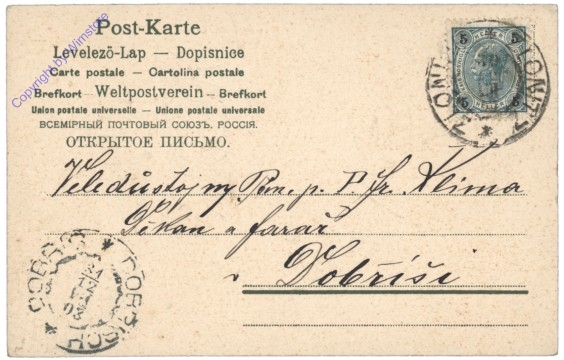 Post-Karte
Levelező-Lap — Dopisnice
Carte postale — Cartolina postale
Brefkort — Weltpostverein — Brefkort
Union postale universelle — Unione postale universale
ВСЕМІРНЫЙ ПОЧТОВЫЙ СОЮЗЪ. РОССІЯ.
ОТКРЫТОЕ ПИСЬМО.
Copyright by Wimstore
5 HELLER 5
ZLONITZ
Veledůstojný Pan, p. P. Fr. Klima
Děkan a farář
v Dobříši
DOBŘÍŠ
DOBRZISCH